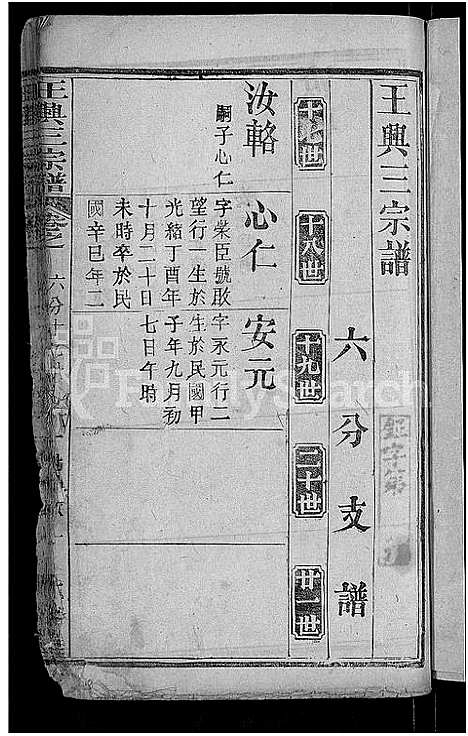 王興三宗譜
六分支譜
十七世
十八世
十九世
二十世
廿一世
汝輅
嗣子心仁
心仁
字榮臣號敢
望行一生於
光緒丁酉年
十月二十日
未時卒於民
國辛巳年二
安元
字永元行二
生於民國甲
子年九月初
七日午時
王興三宗譜
卷之一
六分十七世